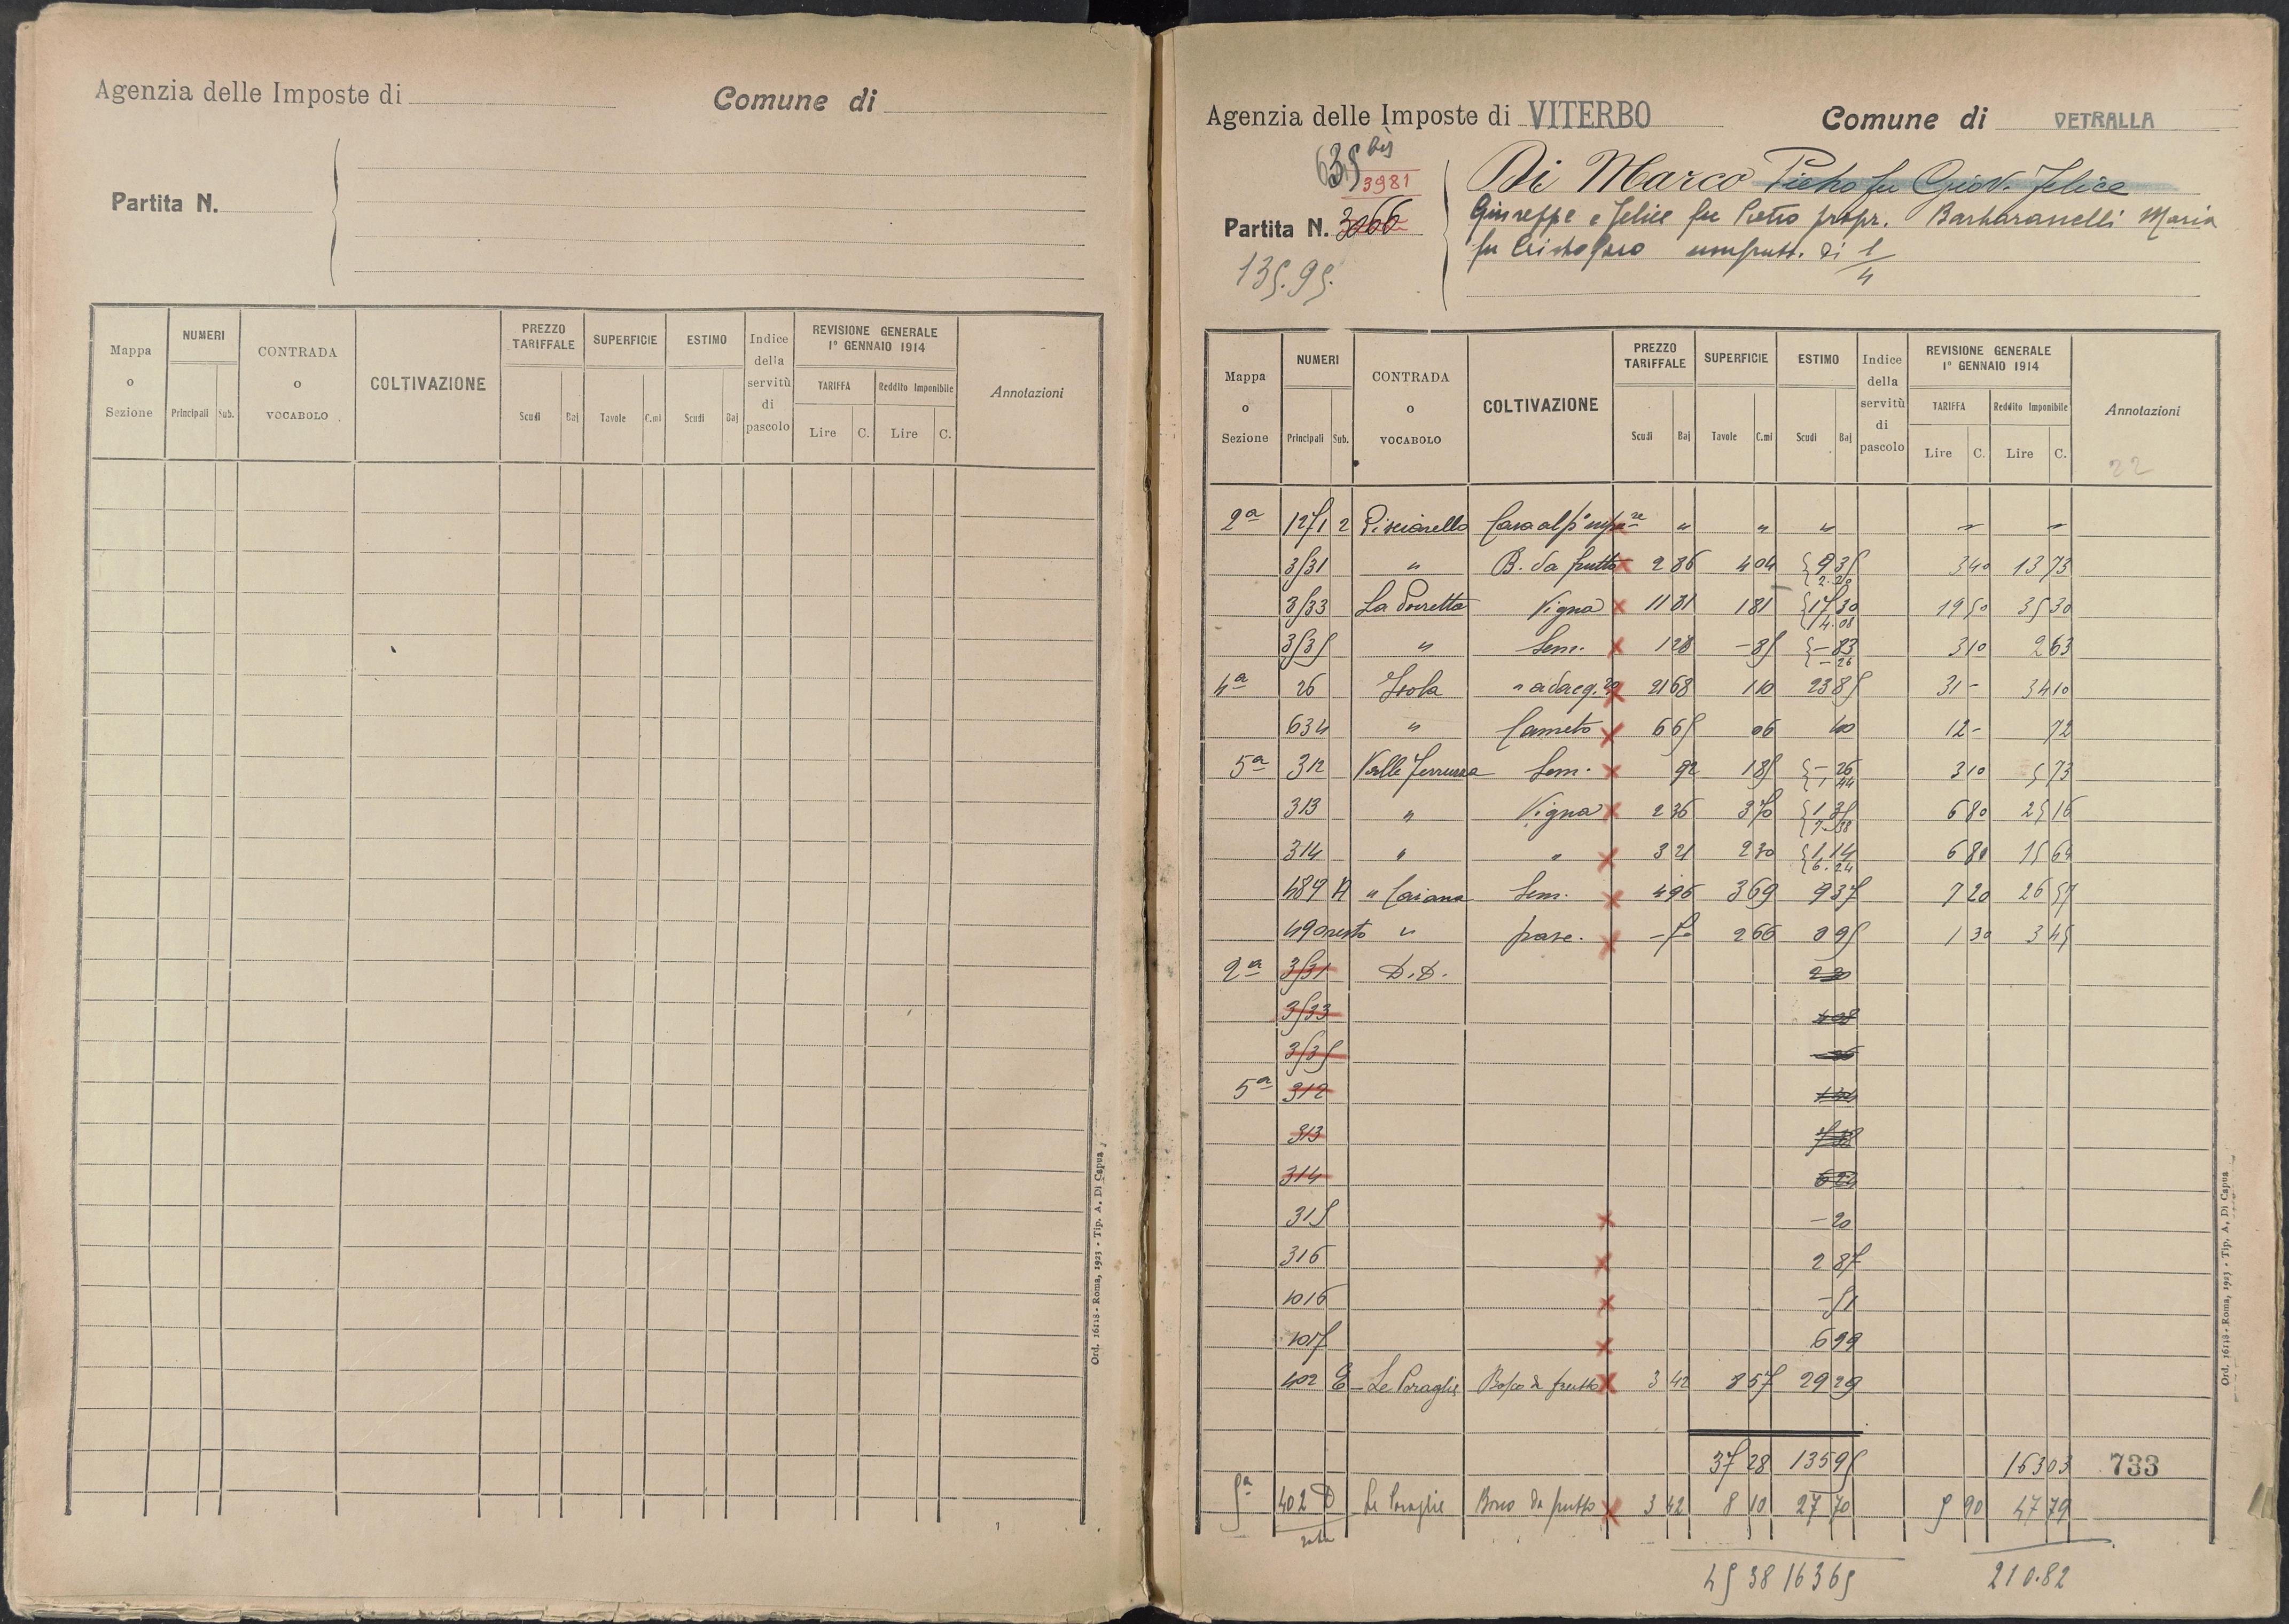 Agenzia delle Imposte di
Comune di
Partita N.
Mappa o Sezione
NUMERI
Principali Sub.
CONTRADA o VOCABOLO
COLTIVAZIONE
PREZZO TARIFFALE
Scudi Baj
SUPERFICIE
Tavole C.mi
ESTIMO
Scudi Baj
Indice della servitù di pascolo
REVISIONE GENERALE 1° GENNAIO 1914
TARIFFA
Lire C.
Reddito Imponibile
Lire C.
Annotazioni
Ord. 16118 - Roma, 1923 - Tip. A. Di Capua
Agenzia delle Imposte di VITERBO
Comune di VETRALLA
635 bis
3981
Partita N. 3066
135.95.
Di Marco Pietro fu Giov. Felice
Giuseppe e Felice fu Pietro propr. Barbaranelli Maria
fu Cristoforo usufrutt. di 1/4
Mappa o Sezione
NUMERI
Principali Sub.
CONTRADA o VOCABOLO
COLTIVAZIONE
PREZZO TARIFFALE
Scudi Baj
SUPERFICIE
Tavole C.mi
ESTIMO
Scudi Baj
Indice della servitù di pascolo
REVISIONE GENERALE 1° GENNAIO 1914
TARIFFA
Lire C.
Reddito Imponibile
Lire C.
Annotazioni
22
2a 1271 2 Pisciarello " " " " "
3531 " B. da frutto 2 86 4 04 9 35 3 40 13 73
2.20
3533 La Porretta Vigna 11 81 1 81 17 30 19 50 35 30
14.08
3535 " Sem. 1 28 - 85 - 83 3 10 2 63
- 26
4a 26 Isola " adacq. 21 68 1 10 23 85 31 - 34 10
634 " Canneto 6 65 06 40 12 - 72
5a 312 Valle Sem. 92 1 85 3 10 5 73
313 " Vigna 2 36 3 70 1 35 6 80 25 16
7.38
314 " " 3 21 2 30 1 14 6 80 15 64
6.24
489 A " Caiana Sem. 4 96 3 69 9 37 7 20 26 57
490 resto " pasc. 2 66 1 30 3 45
2a 3531 D.D. 2 20
3533
3535
5a 312
313 7 38
314 6 24
315 - 20
316 2 87
1016 - 51
1017 6 99
402 E Le Poraglie Bosco da frutto 3 42 8 57 29 29
37 28 135 95 163 03 733
5a 402 D Le Poraglie Bosco da frutto 3 42 8 10 27 70 5 90 47 79
rata
45 38 163 65 210.82
Ord. 16118 - Roma, 1923 - Tip. A. Di Capua